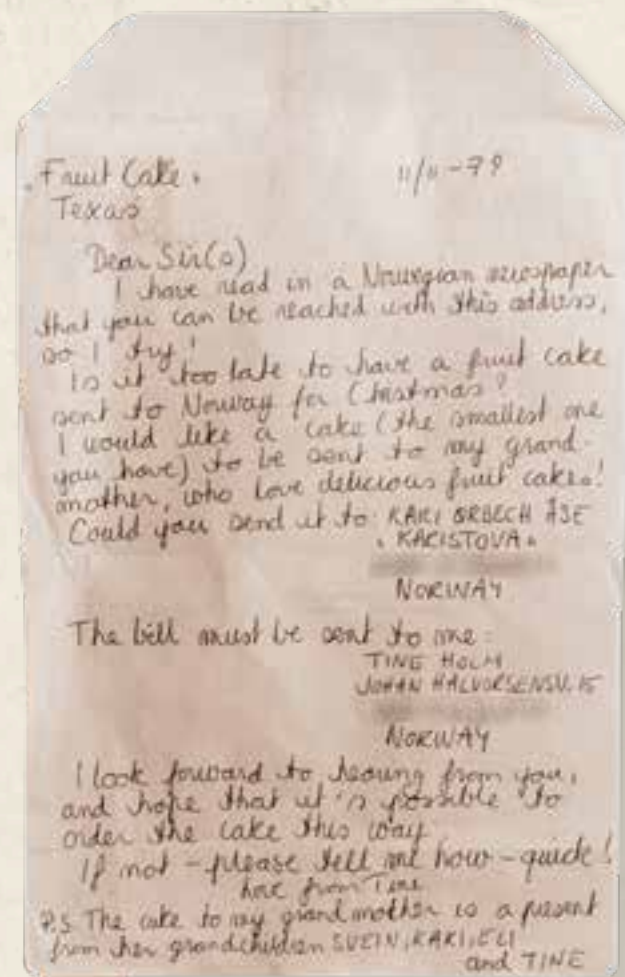 "Fruit Cake"
Texas
11/11-79
Dear Sir(s)
I have read in a Norwegian newspaper
that you can be reached with this address,
so I try!
Is it too late to have a fruit cake
sent to Norway for Christmas?
I would like a cake (the smallest one
you have) to be sent to my grand-
mother, who love delicious fruit cakes!
Could you send it to: KARI ÅSE
"KARISTOVA"
NORWAY
The bill must be sent to me:
TINE HOLM
JOHAN HALVORSENSV. 15
NORWAY
I look forward to hearing from you,
and hope that it's possible to
order the cake this way.
If not - please tell me how - quick!
from Tine
P.S. The cake to my grandmother is a present
from her grandchildren SVEIN, KARI, ELI
and TINE